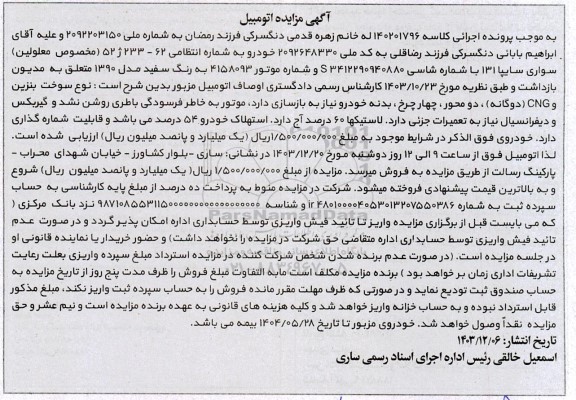 آگهی مزایده اتومبیل
به موجب پرونده اجرائی کلاسه ۱۴۰۲۰۱۷۹۶ له خانم زهره قدمی دنگسرکی فرزند رمضان به شماره ملی ۲۰۹۲۲۰۳۱۵۰ و علیه آقای
ابراهیم بابائی دنگسرکی فرزند رضاقلی به کد ملی ۲۰۹۲۶۴۸۳۳۰ خودرو به شماره انتظامی ۶۲ - ۲۳۳ ژ ۵۲ (مخصوص معلولین)
سواری سایپا ۱۳۱ با شماره شاسی S ۳۴۱۲۲۹۰۹۴۰۸۸۰ و شماره موتور ۴۱۵۸۰۹۳ به رنگ سفید مدل ۱۳۹۰ متعلق به مدیون
بازداشت و طبق نظریه مورخ ۱۴۰۳/۱۰/۲۳ کارشناس رسمی دادگستری اوصاف اتومبیل مزبور بدین شرح است : نوع سوخت بنزین
و CNG (دوگانه) ، دو محور ، چهار چرخ ، بدنه خودرو نیاز به بازسازی دارد، موتور به خاطر فرسودگی باطری روشن نشد و گیربکس
و دیفرانسیال نیاز به تعمیرات جزئی دارد. لاستیکها ۶۰ درصد آج دارد. استهلاک خودرو ۵۴ درصد می باشد و قابلیت شماره گذاری
دارد. خودروی فوق الذکر در شرایط موجود به مبلغ ۱/۵۰۰/۰۰۰/۰۰۰ریال (یک میلیارد و پانصد میلیون ریال) ارزیابی شده است.
لذا اتومبیل فوق از ساعت ۹ الی ۱۲ روز دوشنبه مورخ ۱۴۰۳/۱۲/۲۰ در نشانی: ساری -بلوار کشاورز - خیابان شهدای محراب -
پارکینگ رسالت از طریق مزایده به فروش میرسد. مزایده از مبلغ ۱/۵۰۰/۰۰۰/۰۰۰ ریال( یک میلیارد و پانصد میلیون ریال) شروع
و به بالاترین قیمت پیشنهادی فروخته میشود. شرکت در مزایده منوط به پرداخت ده درصد از مبلغ پایه کارشناسی به حساب
سپرده ثبت به شماره ir ۴۸۰۱۰۰۰۰۴۰۵۳۰۱۳۲۰۷۵۵۰۳۸۶ و شناسه ۹۸۷۱۰۸۵۵۳۱۱۵۰۰۰۰۰۰۰۰۰۰۰۰۰۰۰۰۰ نزد بانک مرکزی (
که می بایست قبل از برگزاری مزایده واریز تا تائید فیش واریزی توسط حسابداری اداره امکان پذیر گردد و در صورت عدم
تائید فیش واریزی توسط حسابداری اداره متقاضی حق شرکت در مزایده را نخواهد داشت) و حضور خریدار یا نماینده قانونی او
در جلسه مزایده است. (در صورت عدم برنده شدن شخص شرکت کننده در مزایده استرداد مبلغ سپرده واریزی بعلت رعایت
تشریفات اداری زمان بر خواهد بود ) برنده مزایده مکلف است مابه التفاوت مبلغ فروش را ظرف مدت پنج روز از تاریخ مزایده به
حساب صندوق ثبت تودیع نماید و در صورتی که ظرف مهلت مقرر مانده فروش را به حساب سپرده ثبت واریز نکند، مبلغ مذکور
قابل استرداد نبوده و به حساب خزانه واریز خواهد شد و کلیه هزینه های قانونی به عهده برنده مزایده است و نیم عشر و حق
مزایده نقداً وصول خواهد شد. خودروی مزبور تا تاریخ ۱۴۰۴/۰۵/۲۸ بیمه می باشد.
تاریخ انتشار: ۱۴۰۳/۱۲/۰۶
اسمعیل خالقی رئیس اداره اجرای اسناد رسمی ساری
ParsNamadData